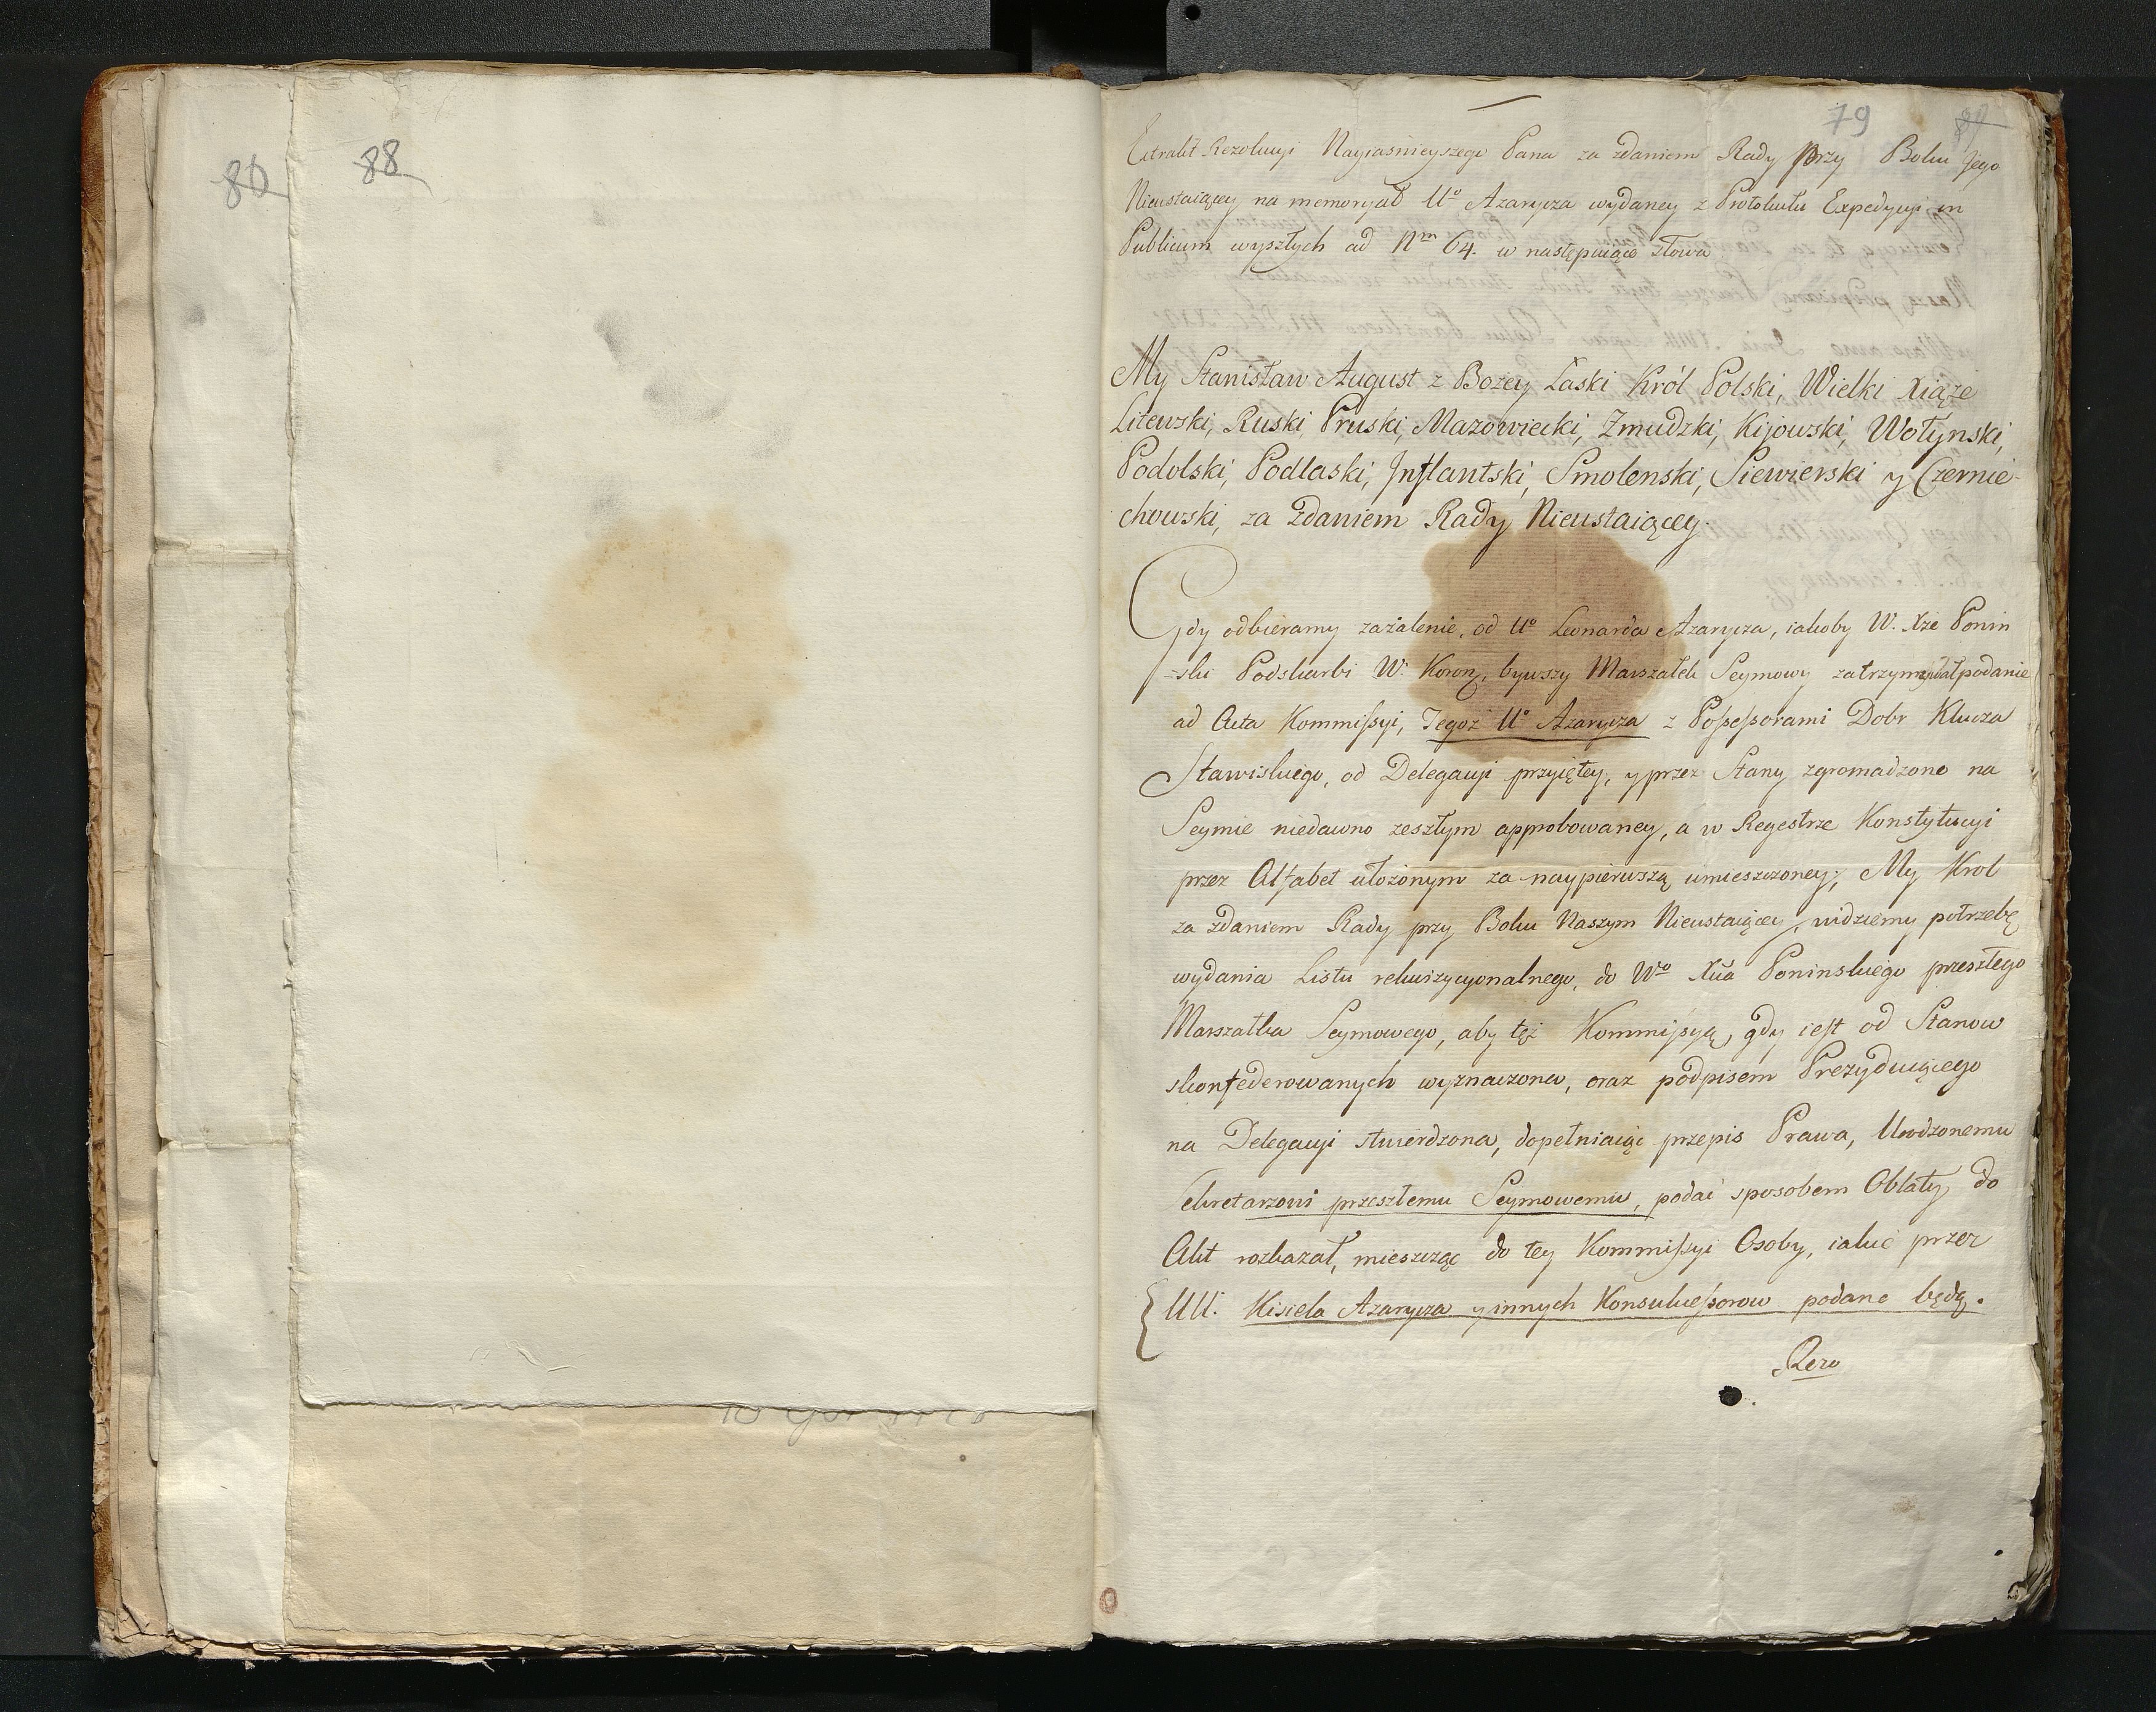 86
88
79
Extrakt Rezolucyi Nayiaśnieyszego Pana za zdaniem Rady przy Boku Jego
Nieustaiącey na memoryał Uo Azarycza wydaney z Protokułu Expedycyi in
Publicum wyszłych ad Nm 64. w następuiące słowa
My Stanisław August z Bożey Łaski Król Polski, Wielki Xiąże
Litewski, Ruski, Pruski, Mazowiecki, Zmudzki, Kijowski, Wołynski,
Podolski, Podlaski, Inflantski, Smolenski, Siewierski y Czernie-
chowski, za zdaniem Rady Nieustaiącey.
Gdy odbieramy zażalenie, od Uo Leonarda Azarycza, iakoby W. Xże Ponin
=ski Podskarbi W. Koronn, bywszy Marszałek Seymowy zatrzymywał podanie
ad Acta Kommissyi, Tegoż Uo Azarycza z Possessorami Dobr Klucza
Stawiskiego, od Delegacyi przyiętey, y przez Stany zgromadzone na
Seymie niedawno zeszłym approbowaney, a w Regestrze Konstytucyi
przez Alfabet ułożonym za naypierwszą umieszczoney; My Krol
za zdaniem Rady przy Boku Naszym Nieustaiącey, widziemy potrzebę
wydania Listu rekwizycyonalnego, do Wo Xcia Poninskiego przeszłego
Marszałka Seymowego, aby tęż Kommissyą, gdy iest od Stanow
skonfederowanych wyznaczona, oraz podpisem Prezyduiącego
na Delegacyi stwierdzona, dopełniaiąc przepis Prawa, Urodzonemu
ekretarzowi przeszłemu Seymowemu, podać sposobem Oblaty do
Akt rozkazał, mieszcząc do tey Kommissyi Osoby, iakie przez
UU. Kisiela Azarycza y innych Konsukcessorow podane będą.
Rezo